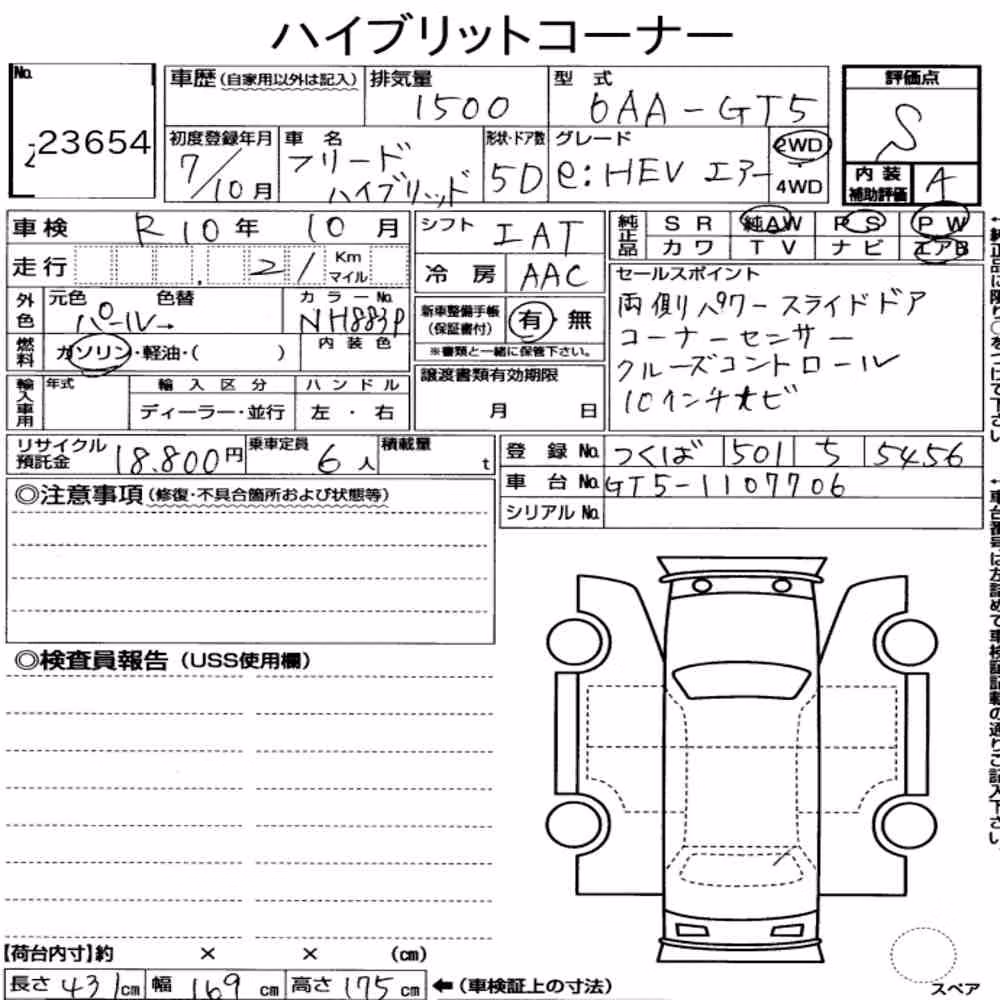 ハイブリットコーナー
No. 23654
車歴(自家用以外は記入) 排気量 1500 型式 6AA-GT5
評価点 S
初度登録年月 7/10月 車名 フリード ハイブリッド 形状・ドア数 5D グレード e:HEV エアー 2WD 4WD
内装補助評価 A
車検 R10年 10月 シフト IAT 純正品 SR 純AW PS PW
カワ TV ナビ エアB
走行 21 Km マイル 冷房 AAC
セールスポイント
両側パワースライドドア
コーナーセンサー
クルーズコントロール
10インチナビ
外色 元色 パール 色替 カラーNo. NH883P
内装色
新車整備手帳(保証書付) 有・無
※書類と一緒に保管下さい。
燃料 ガソリン・軽油・( )
譲渡書類有効期限
月 日
輸入車用 年式 輸入区分 ハンドル
ディーラー・並行 左・右
リサイクル預託金 18.800円 乗車定員 6人 積載量 t
登録No. つくば 501 ち 5456
車台No. GT5-1107706
シリアルNo.
◎注意事項(修復・不具合箇所および状態等)
◎検査員報告(USS使用欄)
【荷台内寸】約 × × (cm)
長さ 431cm 幅 169cm 高さ 175cm ←(車検証上の寸法)
スペア
←純正品に限り○をつけて下さい。
←車台番号は左詰めで車検証記載の通りご記入下さい。